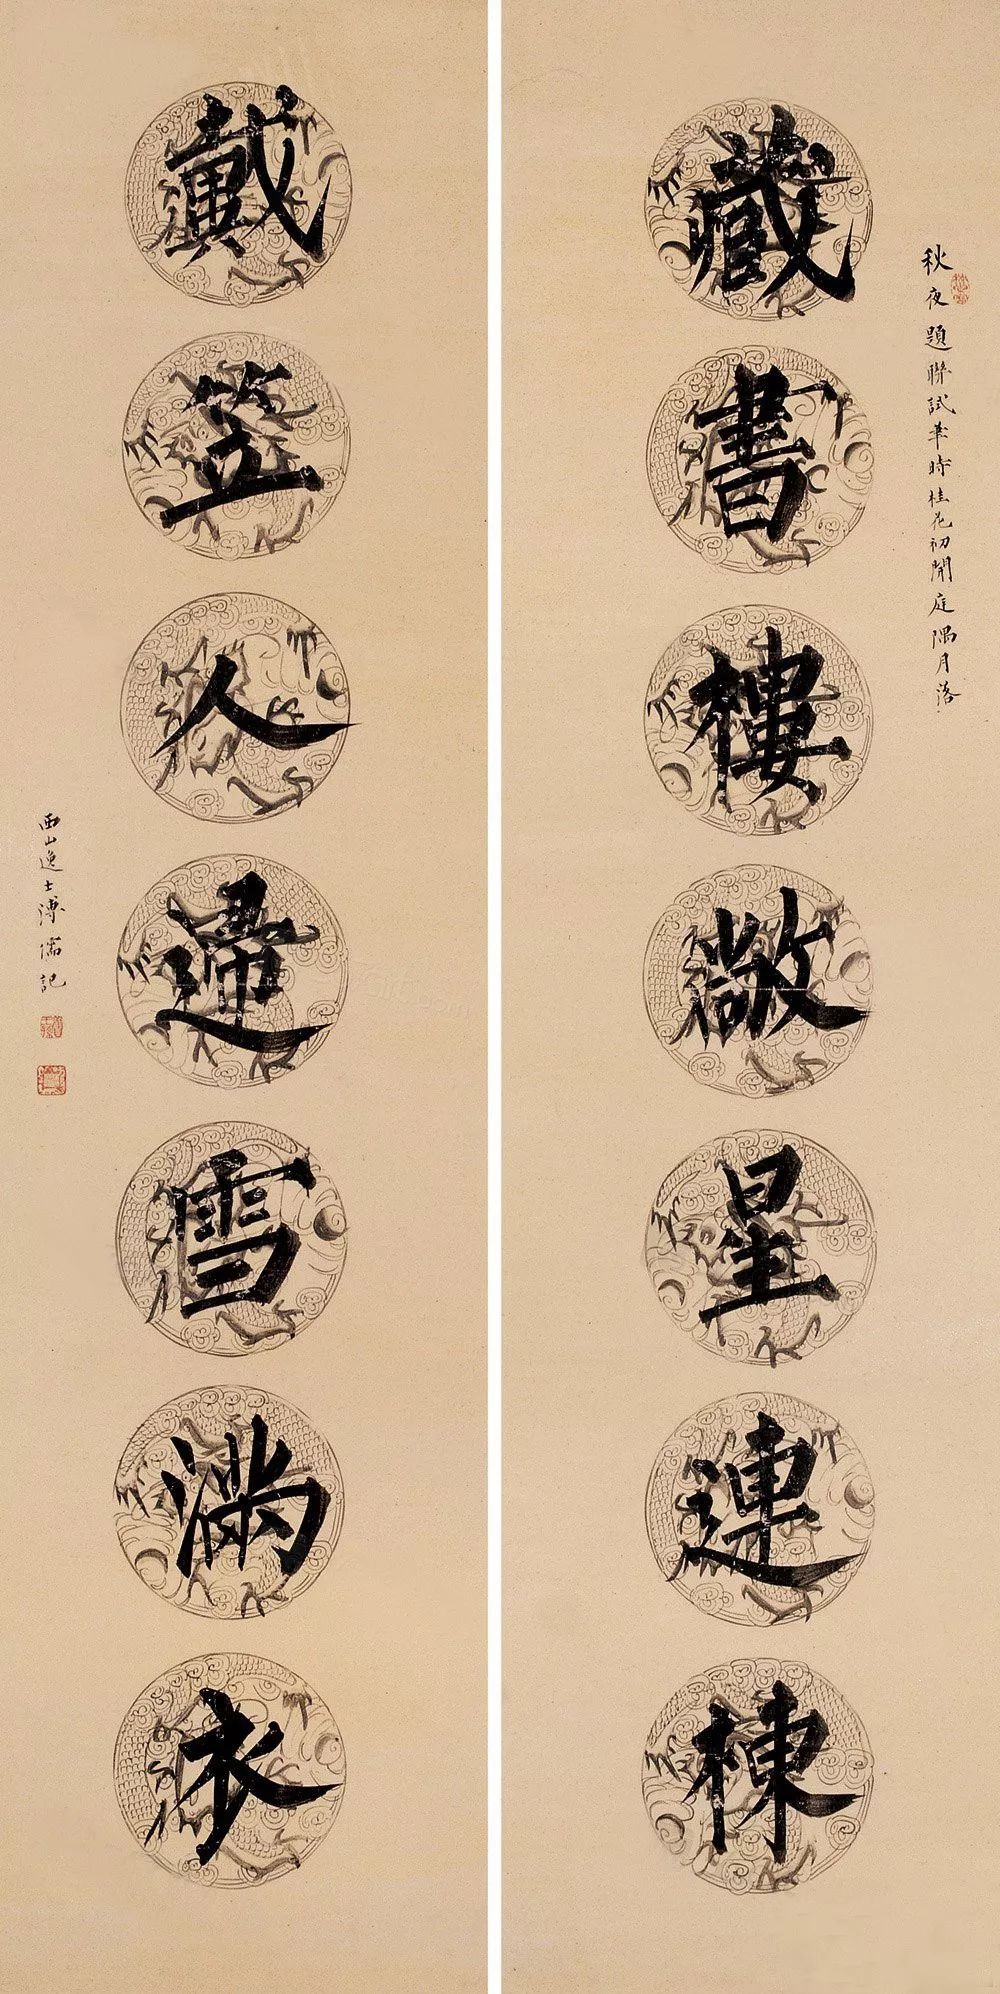 秋夜題聯試筆時桂花初開庭隅月落
藏書樓敞星連棟
戴笠人歸雪滿衣
西山逸士溥儒記